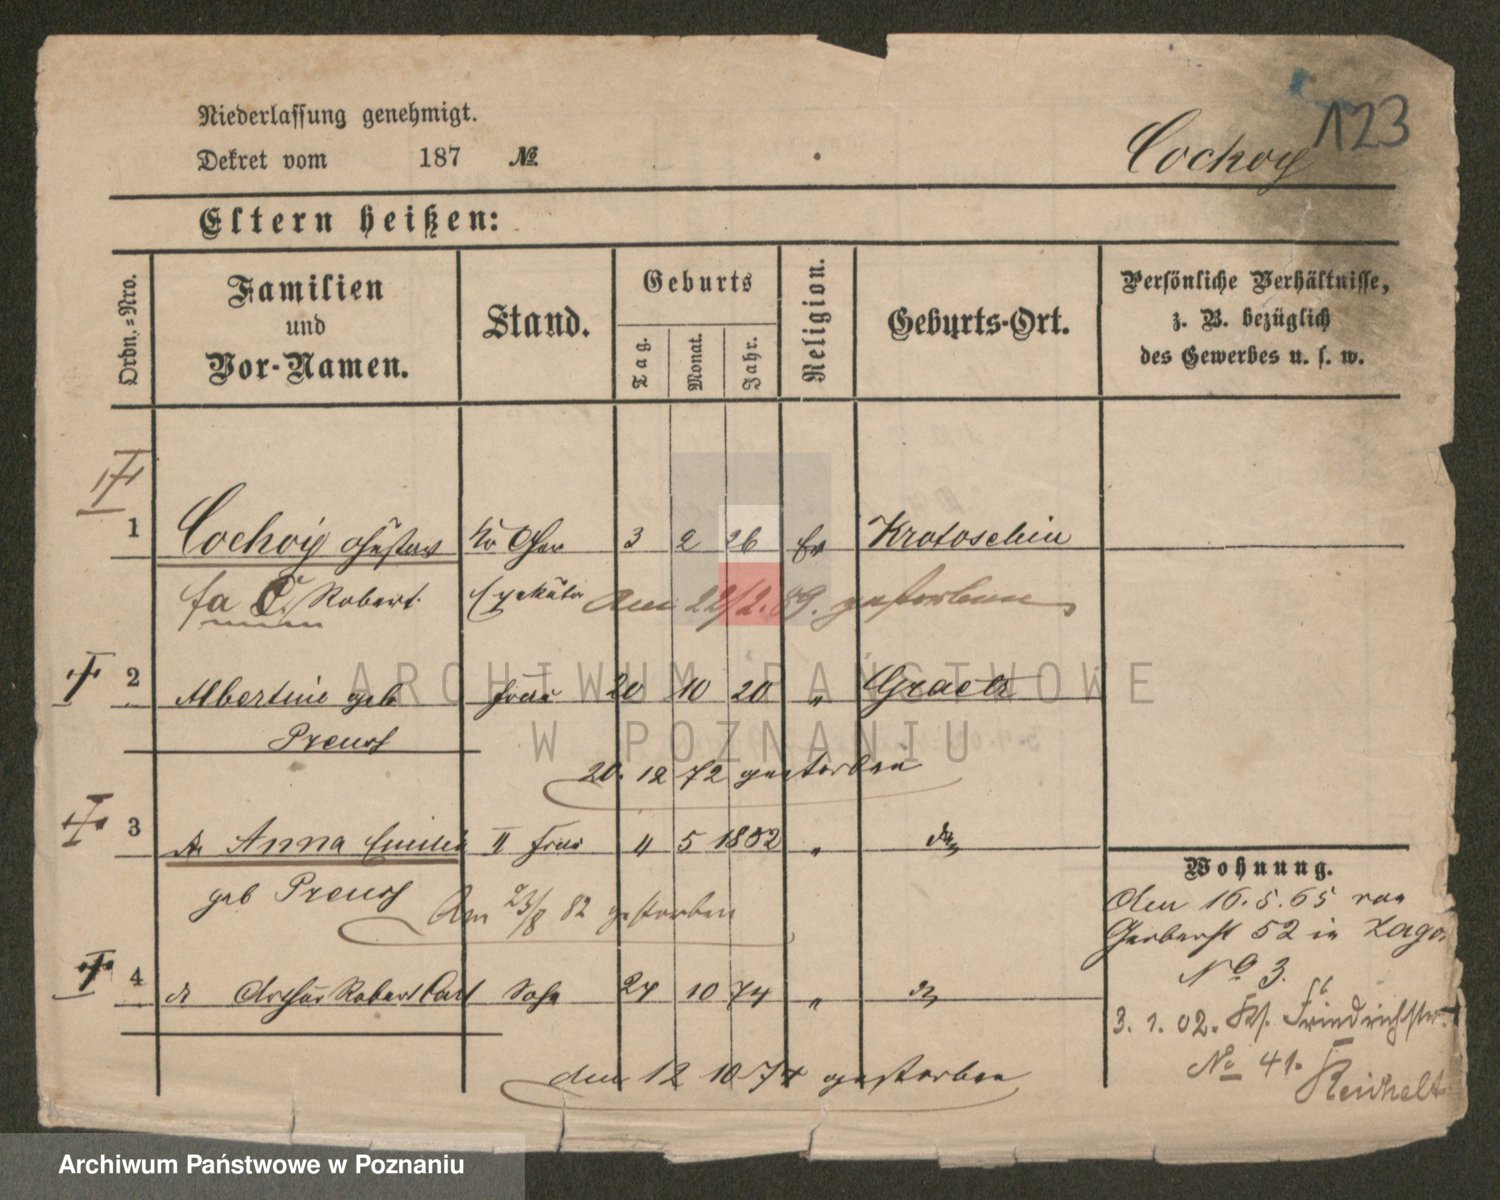 Niederlassung genehmigt.
Dekret vom 187 №
Cochoy 123
Eltern heißen:
Ordn.-Nro.
Familien
und
Vor-Namen.
Stand.
Geburts
Tag.
Monat.
Jahr.
Religion.
Geburts-Ort.
Persönliche Verhältnisse,
z. B. bezüglich
des Gewerbes u. s. w.
1 Cochoy Gustav 3 2 26 Ev Krotoschin
Robert Am 22/2. 89. gestorben
2 Albertine geb Frau 20 10 20 " Graetz
Preuss
20. 12 72 gestorben
3 Anna Emilie II Frau 4 5 1832 "
geb Preuss Am 23/8 82 gestorben
4 Arthur Robert Carl Sohn 24 10 74 "
den 12 10 74 gestorben
Wohnung.
den 16.5.65 von
Gerberst 52 in Zago
No 3.
3. 1. 02. Friedrichstr.
No 41.
Reichelt
ARCHIWUM PAŃSTWOWE
W POZNANIU
Archiwum Państwowe w Poznaniu